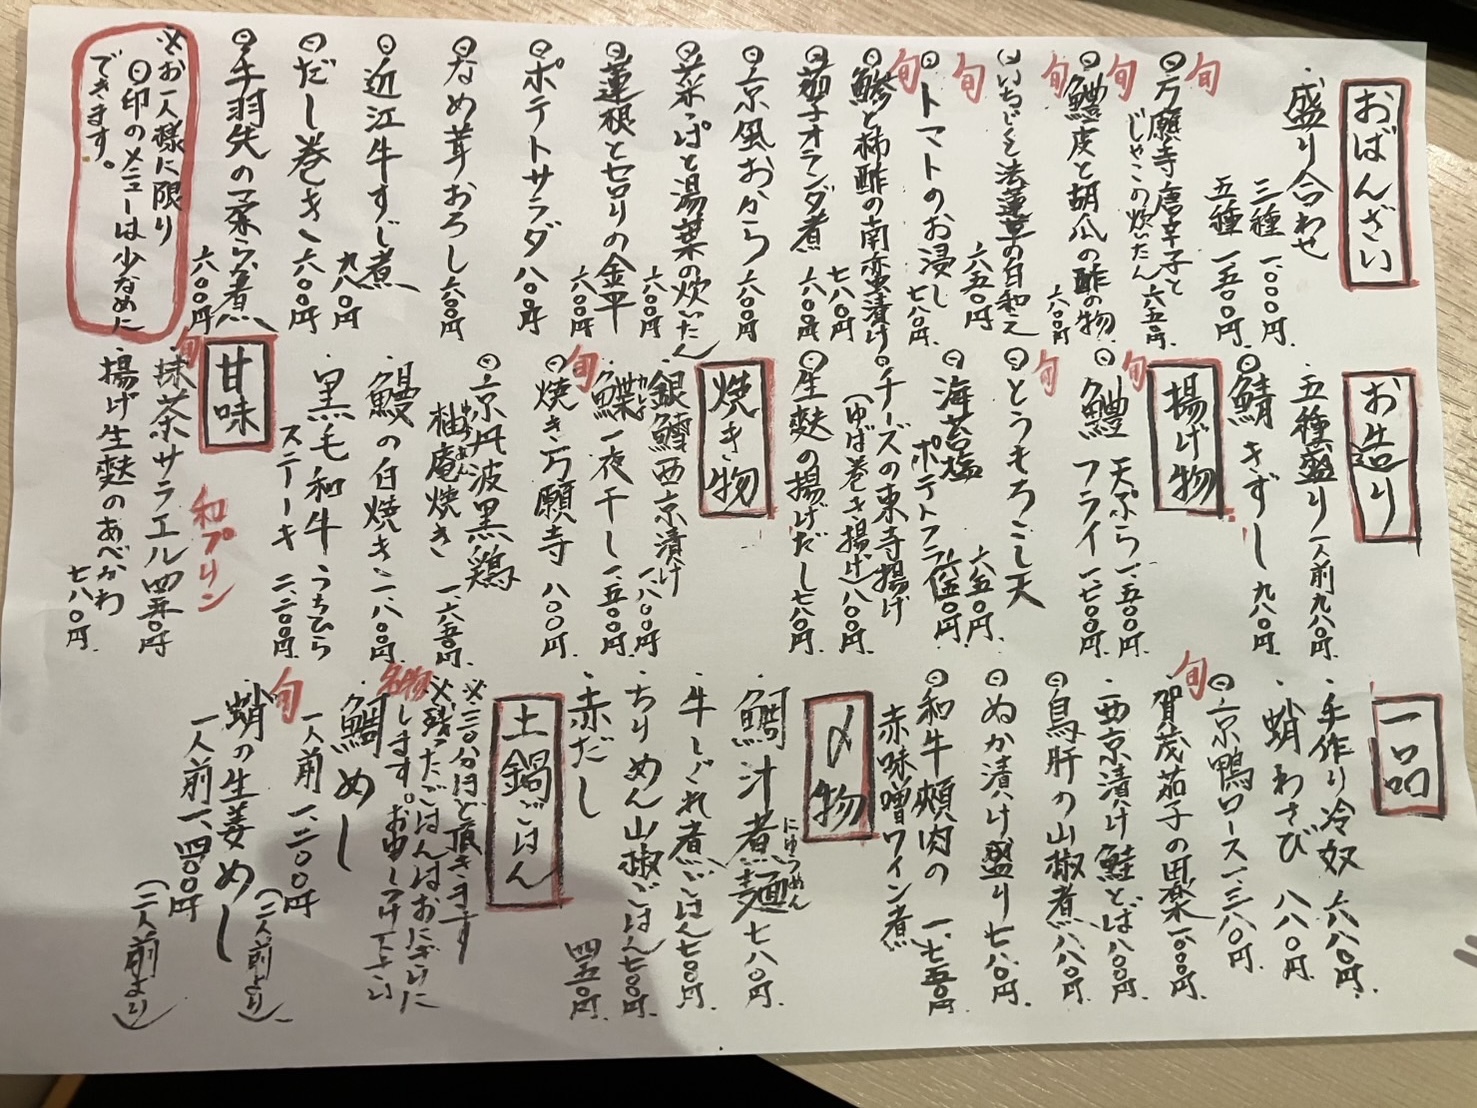 おばんざい
・盛り合わせ
三種 一、〇〇〇円.
五種 一、五〇〇円.
旬
⦿万願寺唐辛子と
じゃこの炊いたん 六五〇円.
旬
⦿鱧皮と胡瓜の酢の物 六〇〇円.
旬
⦿いちじくと法蓮草の白和え 六五〇円
旬
⦿トマトのお浸し 七八〇円.
旬
⦿鯵と柿酢の南蛮漬け 七八〇円
⦿茄子オランダ煮 六八〇円
⦿京風おから 六〇〇円
⦿菜っぱと湯葉の炊いたん 六〇〇円
⦿蓮根とセロリの金平 六〇〇円
⦿ポテトサラダ 八〇円
⦿なめ茸おろし 六〇〇円
⦿近江牛すじ煮 九八〇円
⦿だし巻き 六〇〇円
⦿手羽先の柔らか煮 六〇〇円
※お一人様に限り
⦿印のメニューは少なめに
できます。
お造り
・五種盛り 一人前九八〇円.
⦿鯖きずし 九八〇円.
揚げ物
旬
⦿鱧 天ぷら 一、五〇〇円.
フライ 一、七〇〇円.
旬
⦿とうもろこし天 六五〇円.
⦿海苔塩
ポテトフライ 六五〇円
⦿チーズの東寺揚げ
(ゆば巻き揚げ) 八〇〇円.
⦿生麩の揚げだし 七八〇円.
焼き物
・銀鱈西京漬け 一、八〇〇円
かれい
・鰈一夜干し 一、五〇〇円.
旬
⦿焼き万願寺 八〇〇円
⦿京丹波黒鶏
柚庵焼き 一、六五〇円.
・鰻の白焼き 二、八〇〇円.
・黒毛和牛うちひら
ステーキ 二、二〇〇円.
甘味
旬
・抹茶サラエル 四五〇円
和プリン
・揚げ生麩のあべかわ 七八〇円.
一品
・手作り冷奴 六八〇円.
・蛸わさび 八八〇円.
⦿京鴨ロース 一、三八〇円.
旬
賀茂茄子の田楽 一、〇〇〇円.
・西京漬け鮭とば 八〇〇円.
⦿鳥肝の山椒煮 八八〇円.
⦿ぬか漬け盛り 七八〇円.
⦿和牛頬肉の
赤味噌ワイン煮 一、七五〇円.
〆物
・鯛汁煮麺 七八〇円.
にゅうめん
・牛しぐれ煮ごはん 七〇〇円.
・ちりめん山椒ごはん 七〇〇円.
・赤だし 四五〇円.
土鍋ごはん
※三〇分ほど頂きます
※残ったごはんはおにぎりに
します。お申しつけ下さい
名物
・鯛めし
一人前 一、二〇〇円
(二人前より)
旬
・蛸の生姜めし
一人前 一、四〇〇円
(二人前より)